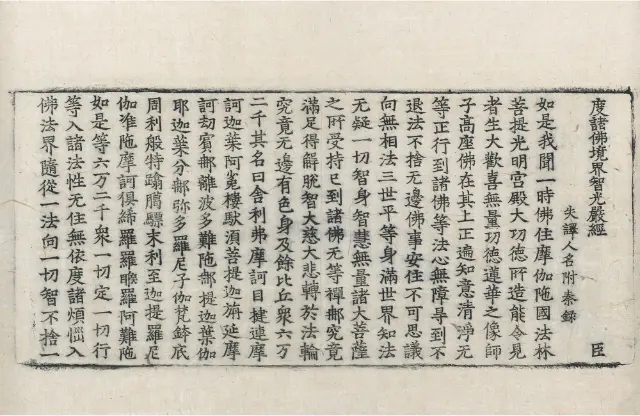 度諸佛境界智光嚴經 臣
失譯人名附秦錄
如是我聞一時佛住摩伽陁國法林
菩提光明宮殿大功德所造能令見
者生大歡喜無量功德道華之像師
子高座佛在其上正遍知意清淨无
等正行到諸佛等法心無障㝵到不
退法不捨无邊佛事安住不可思議
向無相法三世平等身滿世界知法
无疑一切智身智慧無量諸大菩薩
之所受持已到諸佛无等禪郍究竟
滿足得解脫智大慈大悲轉於法輪
究竟无邊有色身及餘比丘衆六万
二千其名曰舍利弗摩訶目揵連摩
訶迦葉阿㝹樓馱湏菩提迦旃延摩
訶劫賓郍離波多難陁郍提迦葉伽
耶迦葉分郍弥多羅尼子伽梵鉢底
周利般特驃末利至迦提羅尼
伽准陁摩訶俱絺羅羅睺羅阿難陁
如是等六万二千衆一切定一切行
等入諸法性无住無依度諸煩惱入
佛法界隨從一法向一切智不捨一